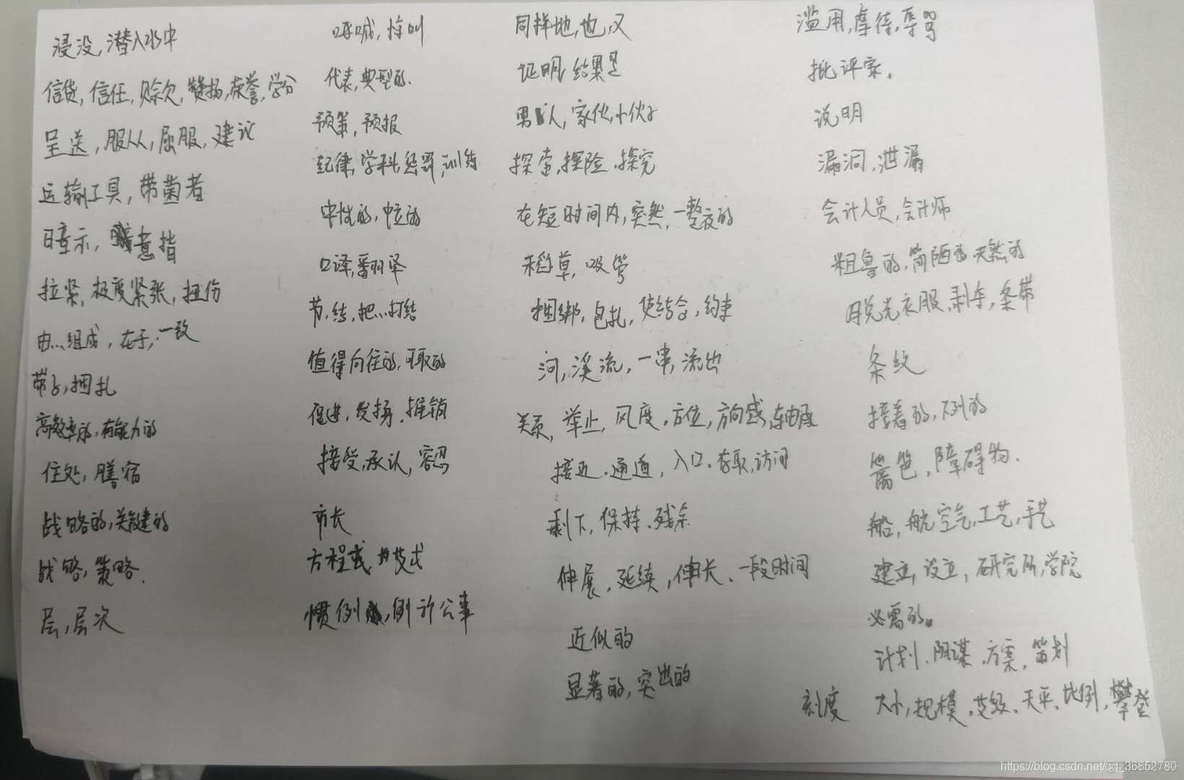 浸没,潜入水中
信贷,信任,赊欠,赞扬,荣誉,学分
呈送,服从,屈服,建议
运输工具,带菌者
暗示,意指
拉紧,极度紧张,扭伤
由...组成,在于,一致
带子,捆扎
高效率的,有能力的
住处,膳宿
战略的,关键的
战略,策略.
层,层次
呼喊,
代表,典型的.
预算,预报
纪律,学科,惩罚,训练
中性的,中立的
口译,翻译
节,结,把...打结
值得向往的,可取的
促进,发扬,推销
接受,承认,容忍
市长
方程式
惯例,例行公事
同样地,也,又
证明,结果是
男人,家伙,小伙子
探索,探险,探究
在短时间内,突然,一整夜的
稻草,吸管
捆绑,包扎,使结合,约束
河,溪流,一串,流出
关系,举止,风度,方位,方向感,轴承
接近.通道,入口.存取,访问
剩下,保持.残余
伸展,延续,伸长、一段时间
近似的
显著的,突出的
滥用,虐待,辱骂
批评家.
说明
漏洞,泄漏
会计人员,会计师
粗鲁的,简陋的,天然的
脱光衣服,剥夺,条带
条纹
接着的,下列的
篱笆,障碍物.
船,航空气,工艺,手艺
建立,设立,研究所,学院
必需的。
计划.阴谋.方案,策划
刻度 大小,规模.等级.天平.比例,攀登
https://blog.csdn.net/qq_36852780